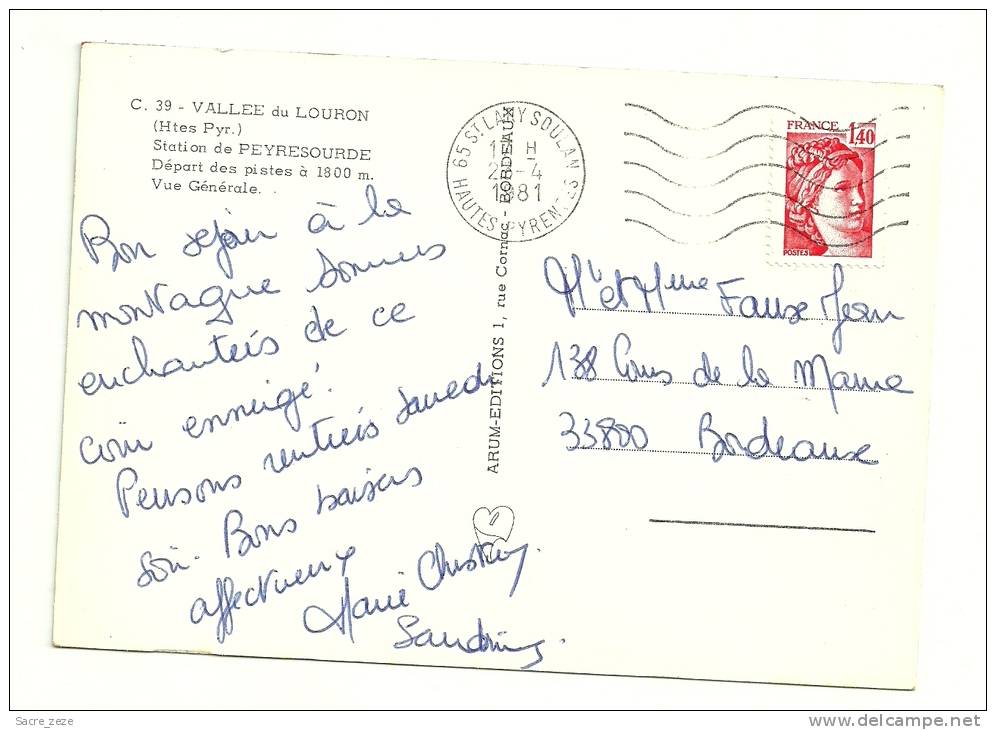 C. 39 - VALLEE du LOURON
(Htes Pyr.)
Station de PEYRESOURDE
Départ des pistes à 1800 m.
Vue Générale.
Bon sejour à la
montagne sommes
enchantés de ce
coin enneigé.
Pensons rentrés samedi
soir. Bons baisers
affectueux
Marie Christine
Sandrine
ARUM-EDITIONS 1, rue Cornac - BORDEAUX
65 ST LARY SOULAN
H
-4
1981
HAUTES PYRENEES
FRANCE
1,40
POSTES
Mr et Mme Fauxe Jean
138 Cours de la Marne
33800 Bordeaux
Sacre_zeze
www.delcampe.net